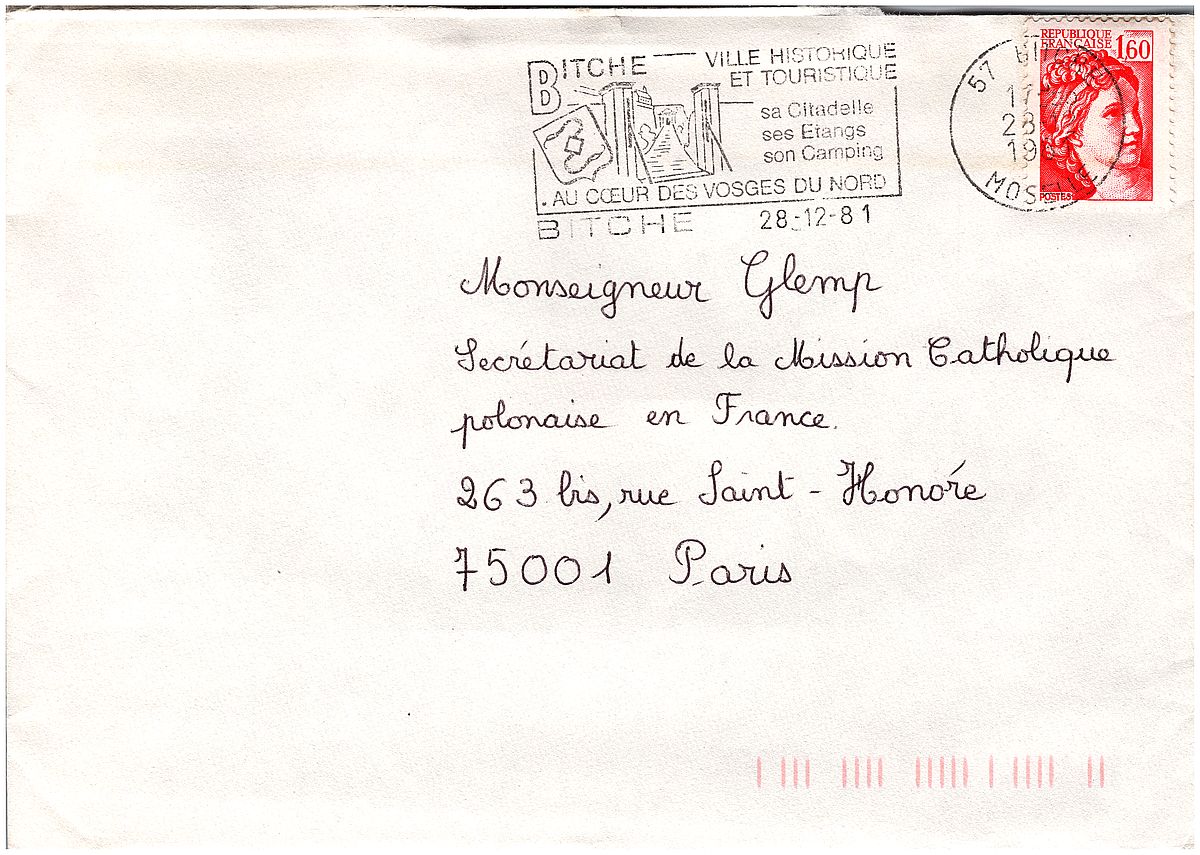 BITCHE
VILLE HISTORIQUE
ET TOURISTIQUE
sa Citadelle
ses Etangs
son Camping
AU CŒUR DES VOSGES DU NORD
BITCHE 28-12-81
57
17
28
19
MOSELLE
REPUBLIQUE
FRANÇAISE 1,60
POSTES
Monseigneur Glemp
Secrétariat de la Mission Catholique
polonaise en France.
263 bis, rue Saint-Honoré
75001 Paris